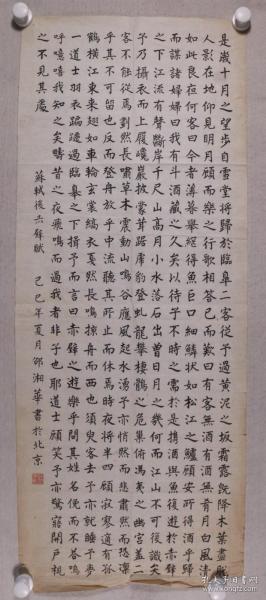 是歲十月之望步自雪堂將歸於臨皋二客從予過黃泥之坂霜露既降木葉盡脫
人影在地仰見明月顧而樂之行歌相答已而歎曰有客無酒有酒無肴月白風清
如此良夜何客曰今者薄暮舉網得魚巨口細鱗狀如松江之鱸顧安所得酒乎歸
而謀諸婦婦曰我有斗酒藏之久矣以待子不時之需於是攜酒與魚復遊於赤壁
之下江流有聲斷岸千尺山高月小水落石出曾日月之幾何而江山不可復識矣
予乃攝衣而上履巉巖披蒙茸踞虎豹登虬龍攀棲鶻之危巢俯馮夷之幽宮蓋二
客不能從焉劃然長嘯草木震動山鳴谷應風起水湧予亦悄然而悲肅然而恐凜
乎其不可留也反而登舟放乎中流聽其所止而休焉時夜將半四顧寂寥適有孤
鶴橫江東來翅如車輪玄裳縞衣戛然長鳴掠舟而西也須臾客去予亦就睡夢
一道士羽衣蹁躚過臨皋之下揖予而言曰赤壁之遊樂乎問其姓名俛而不答嗚
呼噫嘻我知之矣疇昔之夜飛鳴而過我者非子也耶道士顧笑予亦驚寤開戶視
之不見其處
蘇軾後赤壁賦 己巳年夏月邵湘華書於北京